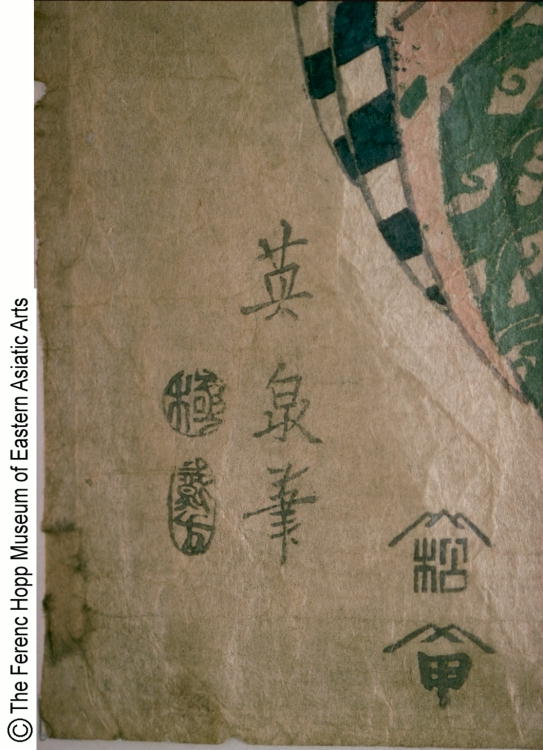 松
甲
英泉筆
極
© The Ferenc Hopp Museum of Eastern Asiatic Arts